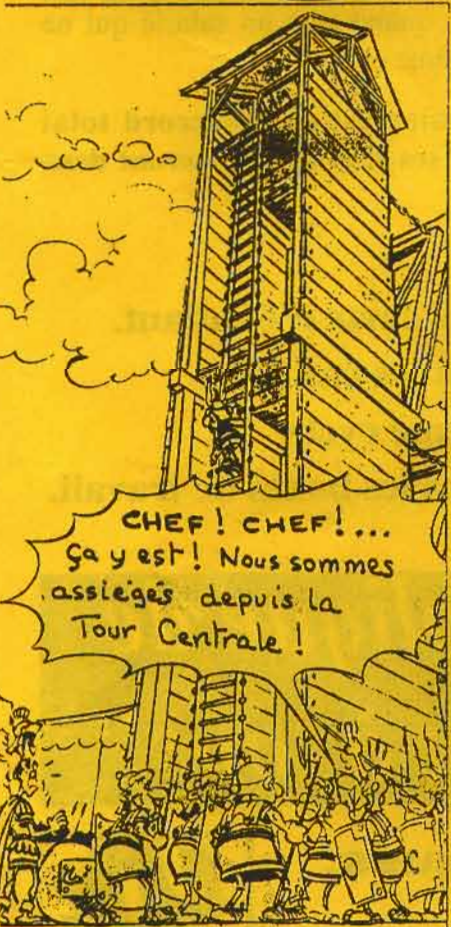 CHEF ! CHEF !...
ça y est ! Nous sommes
assiégés depuis la
Tour Centrale !